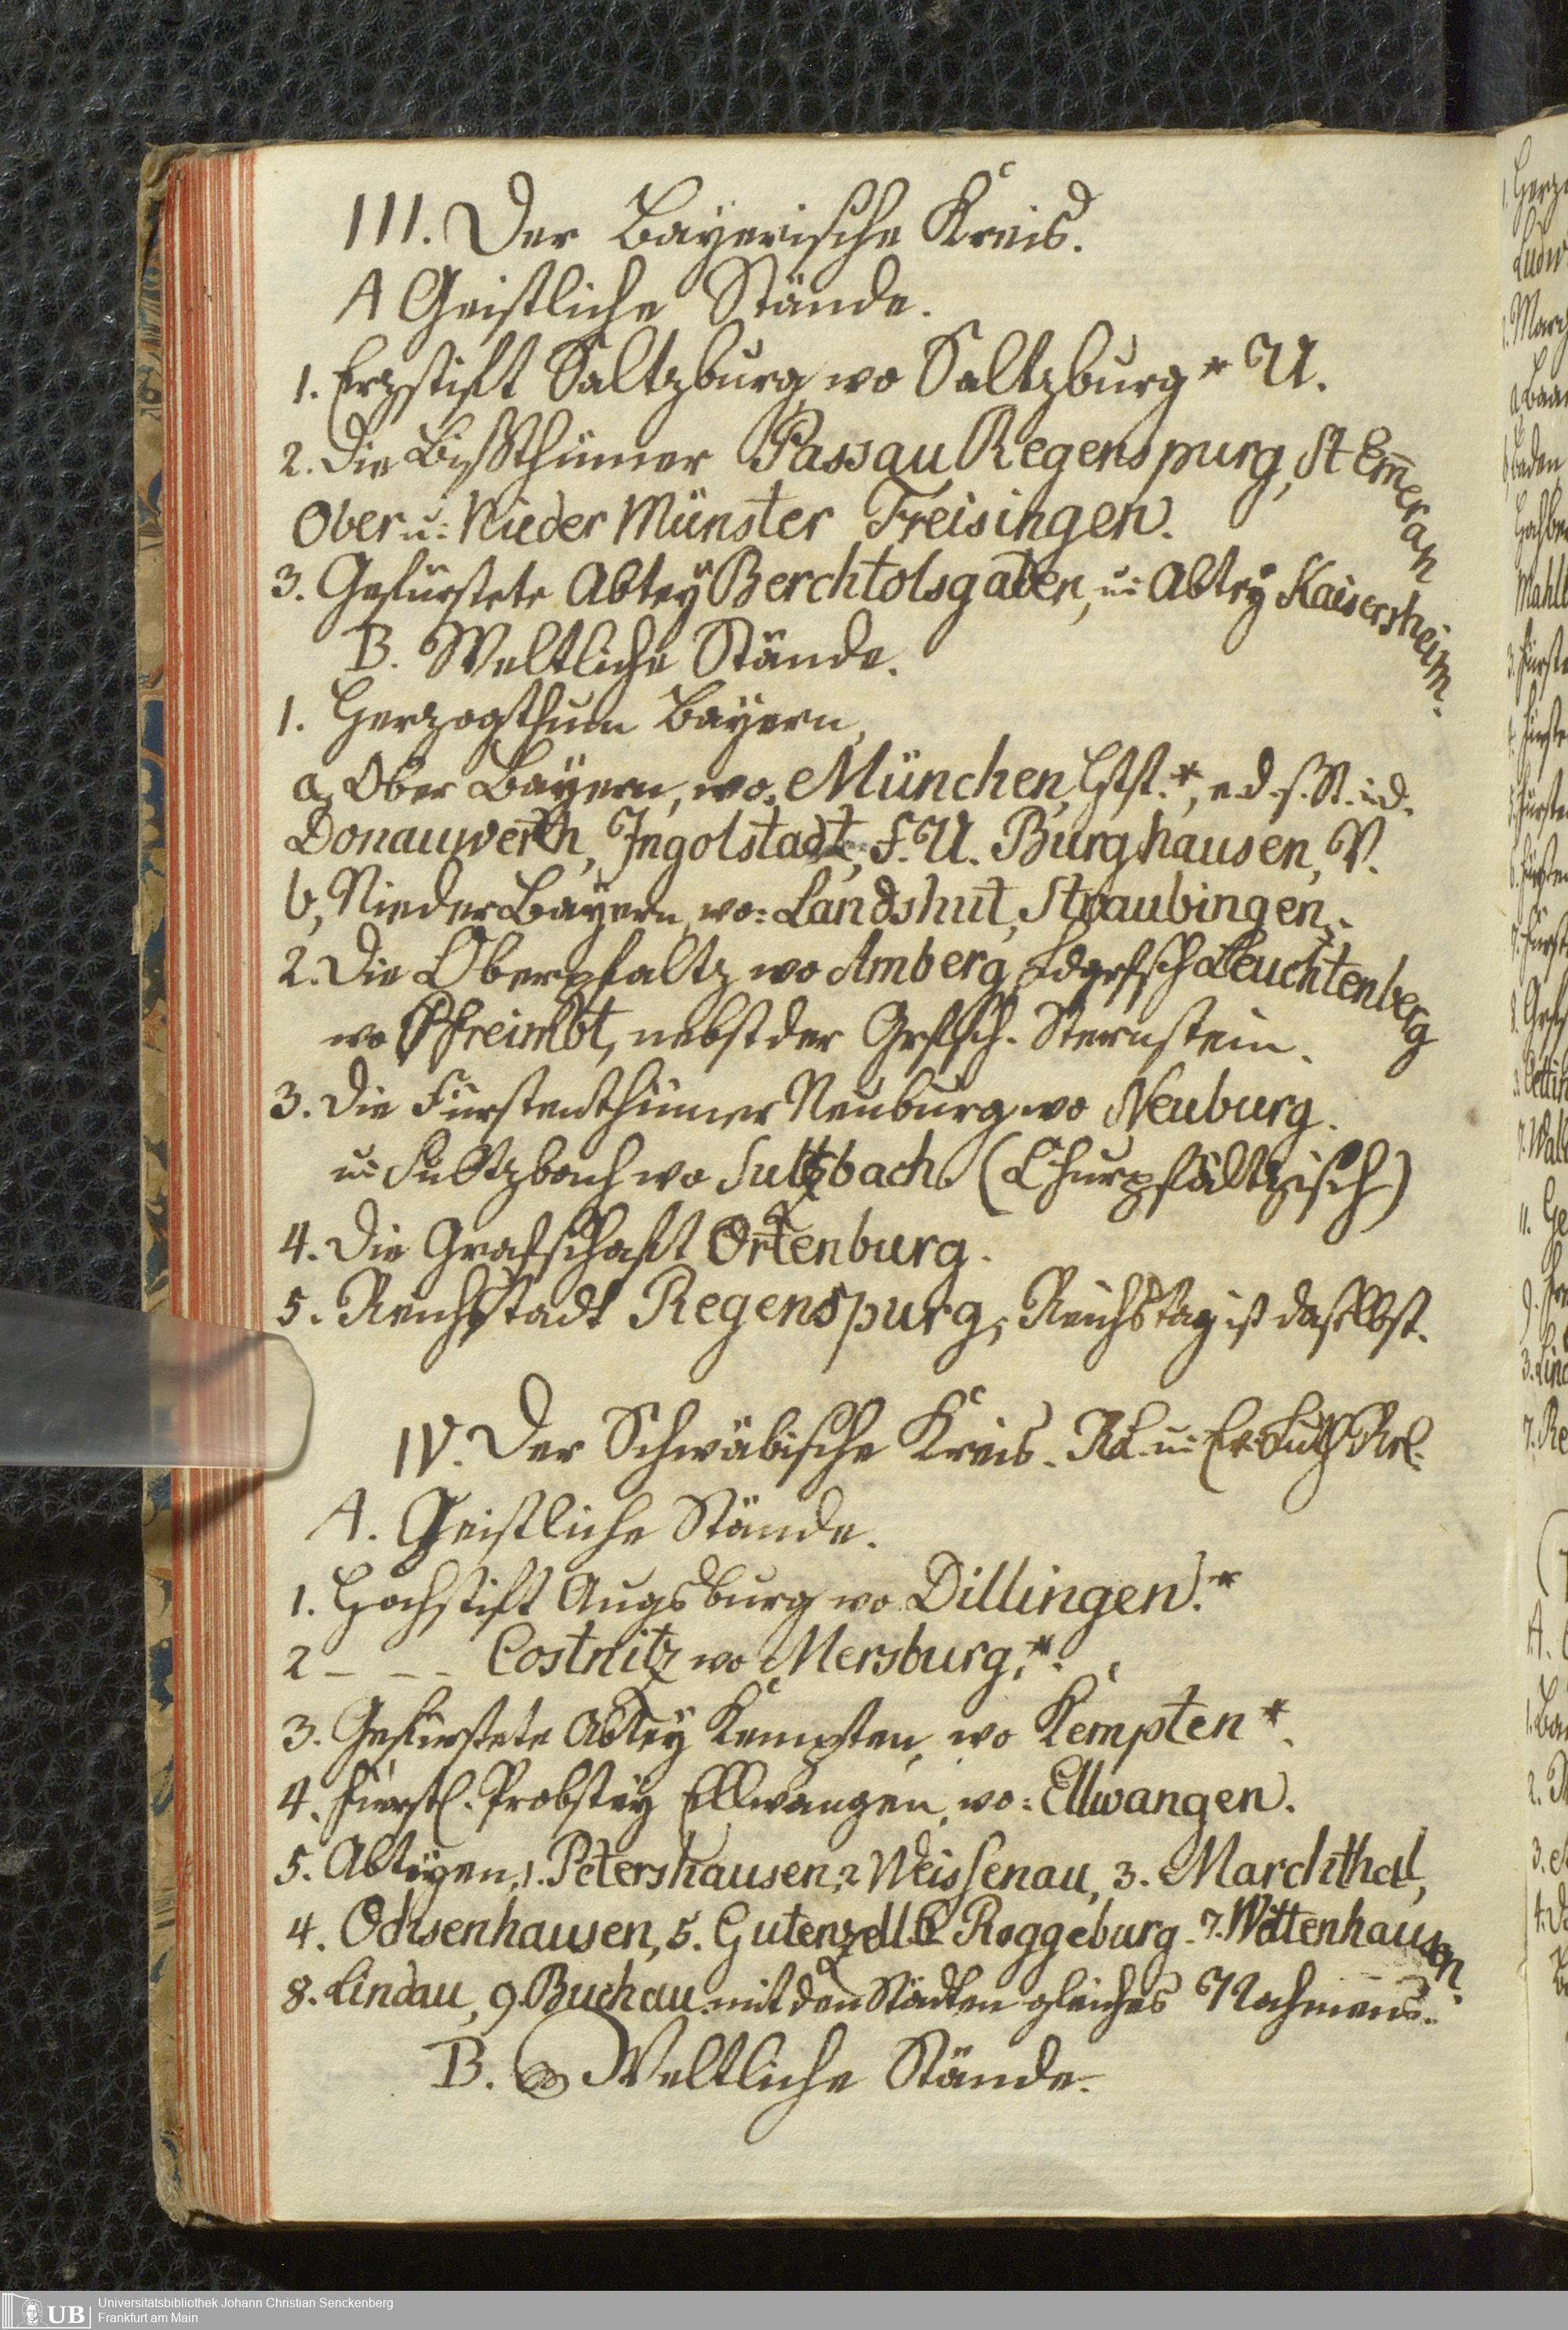 III. Der Bayerische Kreis.
A Geistliche Stände.
1. Erzstift Saltzburg, wo Saltzburg * U.
2. Die Bißthümer Passau, Regenspurg, St Em̅eran
Ober u: Nieder Münster Freisingen.
3. Gefürstete Abtey Berchtolsgaden, u: Abtey Kaisersheim.
B. Weltliche Stände.
1. Herzogthum Bayern,
a, Ober Bayern, wo, München, Hst. *,
Donauwerth, Ingolstadt, f. U. Burghausen, V.
b, Nieder Bayern, wo: Landshut, Straubingen,
2. Die Oberpfaltz wo Amberg, Ldgrfsch Leuchtenberg
wo Pfreimbt, nebst der Grfsch. Sternstein.
3. Die Fürstenthümer Neuburg, wo Neuburg.
u: Sultzbach wo Sultzbach. (Churpfältzisch)
4. Die Grafschaft Ortenburg.
5. Reichsstadt Regenspurg, Reichstag ist daselbst.
IV. Der Schwäbische Kreis. RK. u: Ev. Luth Rel.
A. Geistliche Stände.
1. Hochstift Augsburg wo Dillingen. *
2 - - - Costnitz wo Mersburg, *.
3. Gefürstete Abtey Kempten, wo Kempten *.
4. Fürstl. Probstey Ellwangen, wo: Ellwangen.
5. Abteyen, 1. Petershausen, 2 Weissenau, 3. Marchthal,
4. Ochsenhausen, 5. Gutenzell 6 Roggeburg. 7. Wettenhausen.
8. Lindau, 9. Buchau. mit den Städten gleiches Nahmens.
B. Weltliche Stände.
UB Universitätsbibliothek Johann Christian Senckenberg
Frankfurt am Main